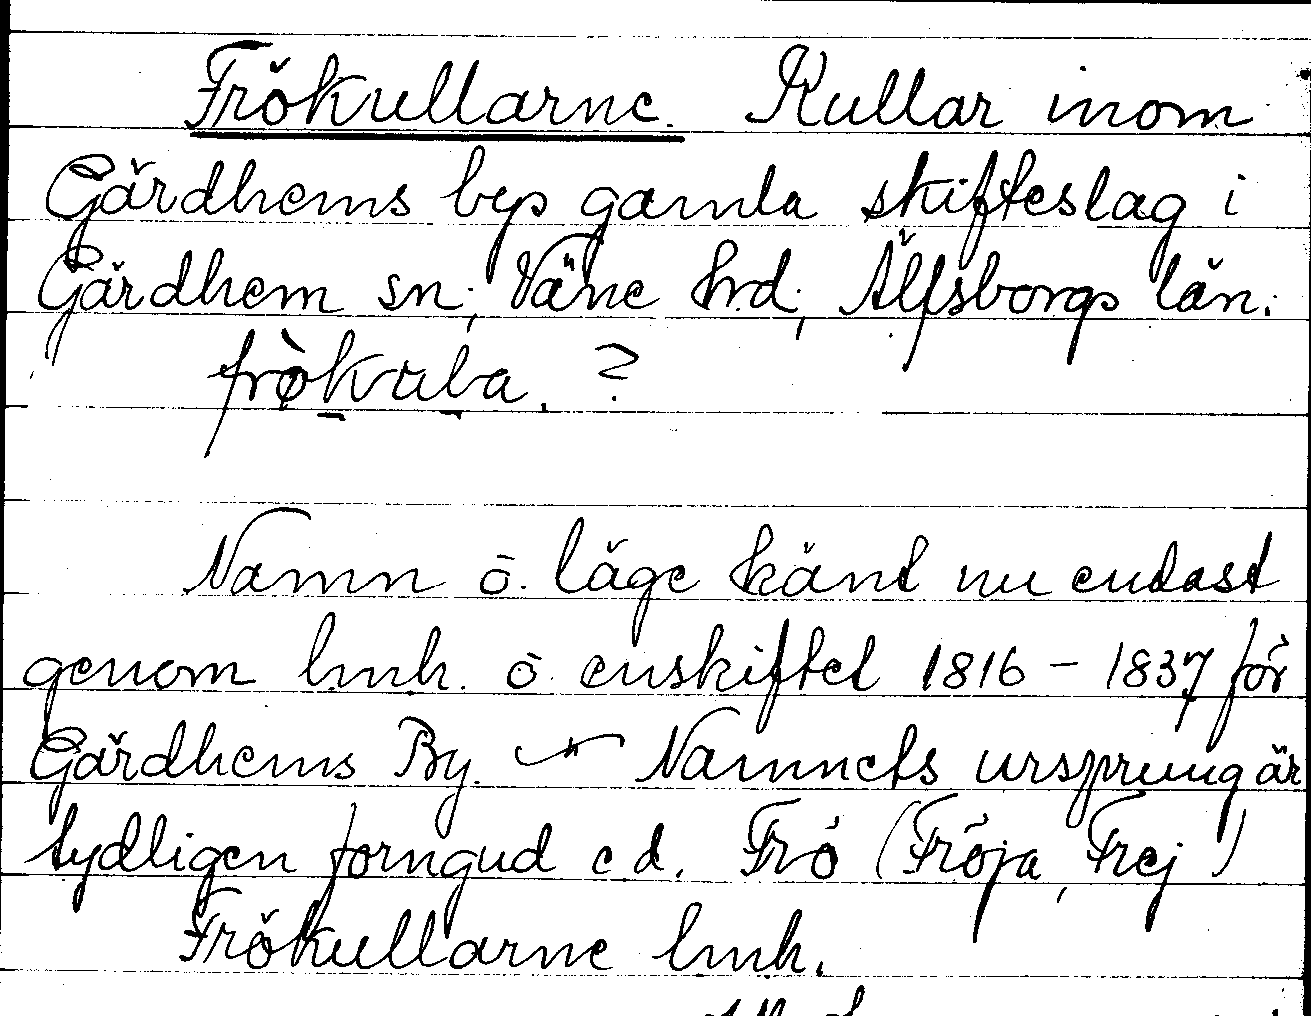 Frökullarne. Kullar inom
Gärdhems bys gamla skifteslag i
Gärdhem sn, Väne hrd, Älfsborgs län.
?
Namn o. läge känt nu endast
genom lmh. o. enskiftet 1816 - 1837 för
Gärdhems By. Namnets ursprung är
tydligen forngud e d. Frö (Fröja, Frej)
Frökullarne lmh.